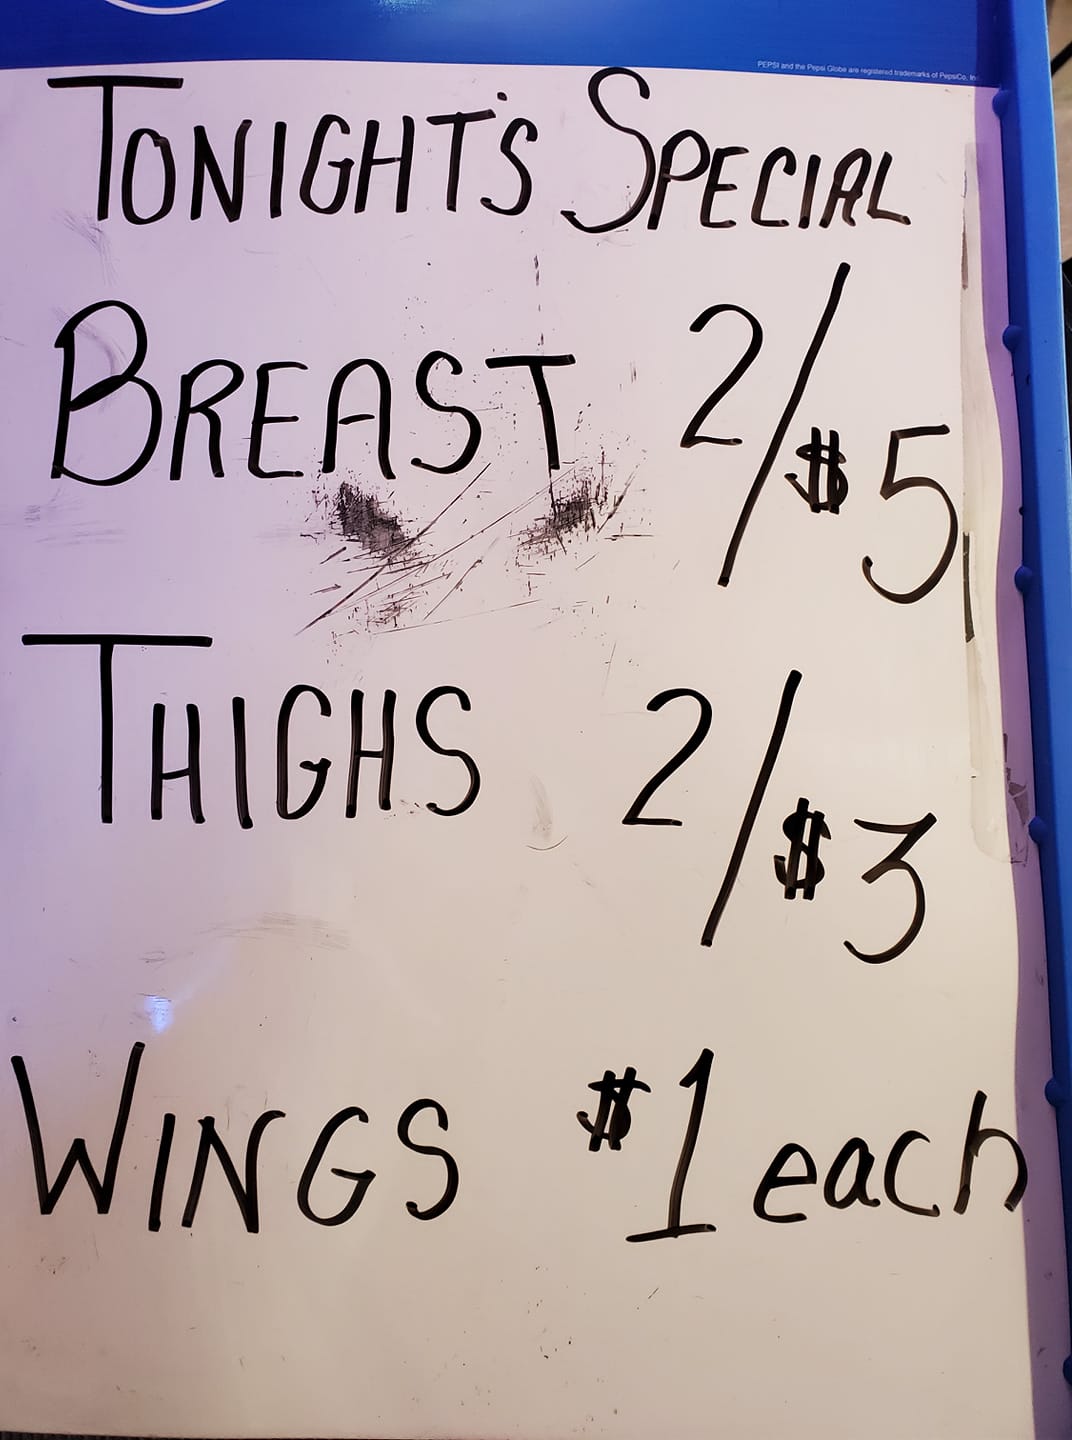 PEPSI and the Pepsi Globe are registered trademarks of PepsiCo, Inc
TONIGHT'S SPECIAL
BREAST 2/$5
THIGHS 2/$3
WINGS $1 each